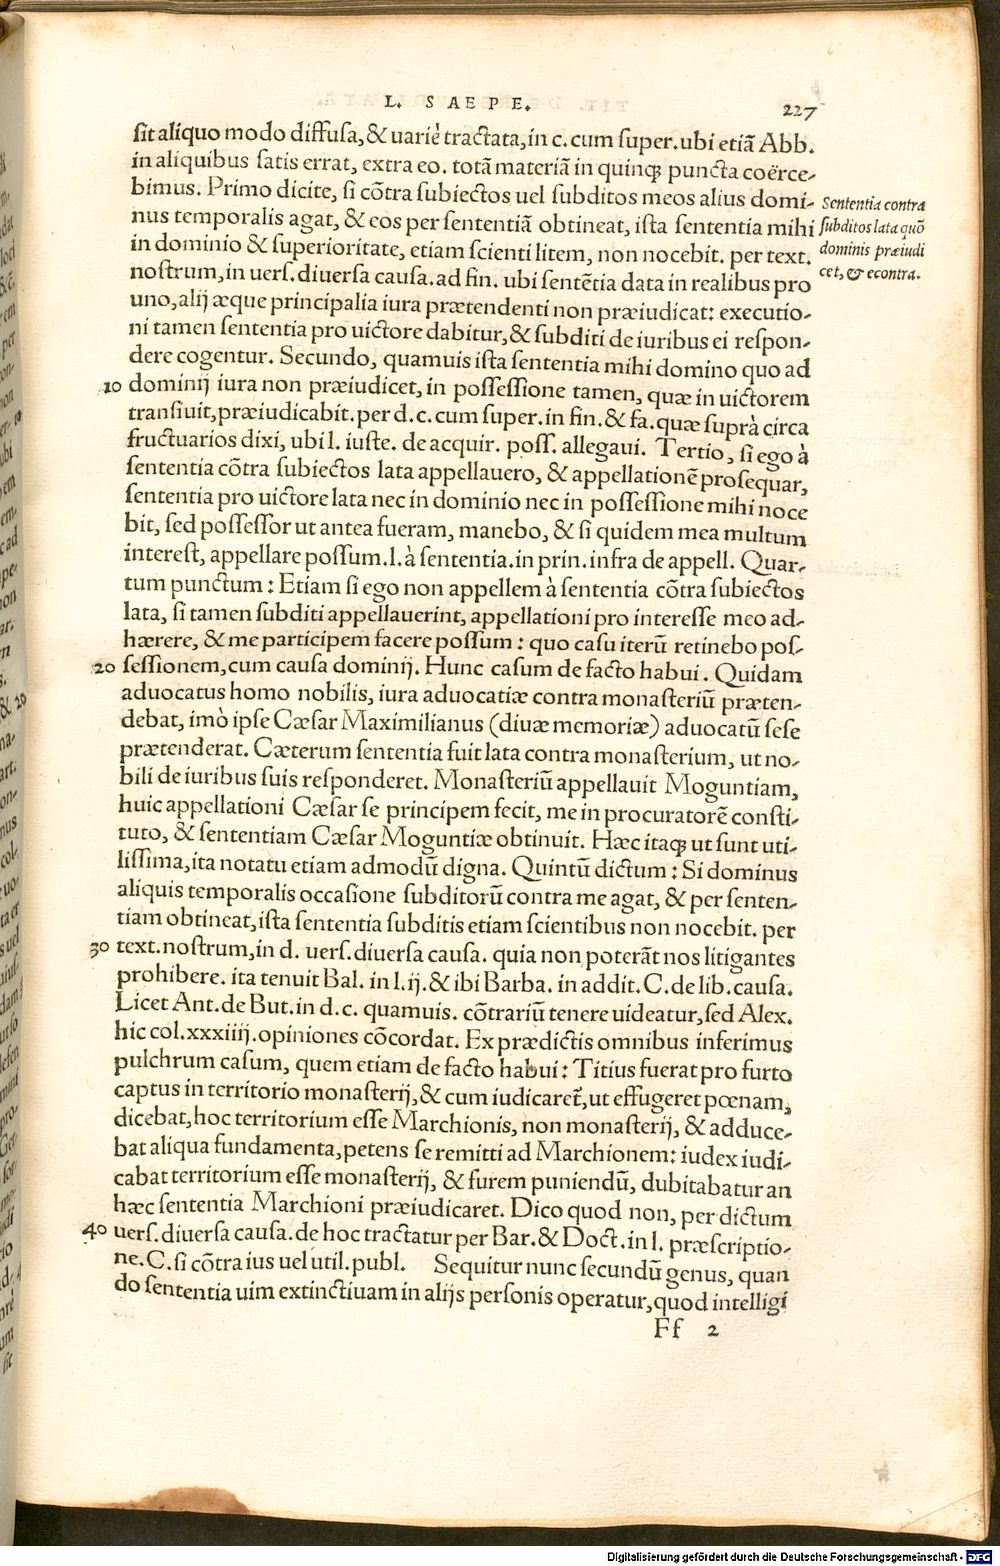 L. SAEPE. 227
sit aliquo modo diffusa, & uariè tractata, in c. cum super. ubi etiã Abb.
in aliquibus satis errat, extra eo. totã materiã in quinqȝ puncta coërce-
bimus. Primo dicite, si cõtra subiectos uel subditos meos alius domi-
nus temporalis agat, & eos per sententiã obtineat, ista sententia mihi
in dominio & superioritate, etiam scienti litem, non nocebit. per text.
nostrum, in uers. diuersa causa. ad fin. ubi sentẽtia data in realibus pro
uno, alij æque principalia iura prætendenti non præiudicat: executio-
ni tamen sententia pro uictore dabitur, & subditi de iuribus ei respon-
dere cogentur. Secundo, quamuis ista sententia mihi domino quo ad
10 dominij iura non præiudicet, in possessione tamen, quæ in uictorem
transiuit, præiudicabit. per d. c. cum super. in fin. & fa. quæ suprà circa
fructuarios dixi, ubi l. iuste. de acquir. poss. allegaui. Tertio, si ego à
sententia cõtra subiectos lata appellauero, & appellationẽ prosequar,
sententia pro uictore lata nec in dominio nec in possessione mihi noce
bit, sed possessor ut antea fueram, manebo, & si quidem mea multum
interest, appellare possum. l. à sententia. in prin. infra de appell. Quar-
tum punctum: Etiam si ego non appellem à sententia cõtra subiectos
lata, si tamen subditi appellauerint, appellationi pro interesse meo ad-
hærere, & me participem facere possum: quo casu iterũ retinebo pos-
20 sessionem, cum causa dominij. Hunc casum de facto habui. Quidam
aduocatus homo nobilis, iura aduocatiæ contra monasteriũ præten-
debat, imò ipse Cæsar Maximilianus (diuæ memoriæ) aduocatũ sese
prætenderat. Cæterum sententia fuit lata contra monasterium, ut no-
bili de iuribus suis responderet. Monasteriũ appellauit Moguntiam,
huic appellationi Cæsar se principem fecit, me in procuratorẽ consti-
tuto, & sententiam Cæsar Moguntiæ obtinuit. Hæc itaqȝ ut sunt uti-
lissima, ita notatu etiam admodũ digna. Quintũ dictum: Si dominus
aliquis temporalis occasione subditorũ contra me agat, & per senten-
tiam obtineat, ista sententia subditis etiam scientibus non nocebit. per
30 text. nostrum, in d. uers. diuersa causa. quia non poterãt nos litigantes
prohibere. ita tenuit Bal. in l. ij. & ibi Barba. in addit. C. de lib. causa.
Licet Ant. de But. in d. c. quamuis. cõtrariũ tenere uideatur, sed Alex.
hic col. xxxiiij. opiniones cõcordat. Ex prædictis omnibus inferimus
pulchrum casum, quem etiam de facto habui: Titius fuerat pro furto
captus in territorio monasterij, & cum iudicaret̃, ut effugeret pœnam,
dicebat, hoc territorium esse Marchionis, non monasterij, & adduce-
bat aliqua fundamenta, petens se remitti ad Marchionem: iudex iudi-
cabat territorium esse monasterij, & furem puniendũ, dubitabatur an
hæc sententia Marchioni præiudicaret. Dico quod non, per dictum
40 uers. diuersa causa. de hoc tractatur per Bar. & Doct. in l. præscriptio-
ne. C. si cõtra ius uel util. publ. Sequitur nunc secundũ genus, quan
do sententia uim extinctiuam in alijs personis operatur, quod intelligi
Ff 2
Sententia contra
subditos lata quõ
dominis præiudi
cet, & econtra.
Digitalisierung gefördert durch die Deutsche Forschungsgemeinschaft - DFG